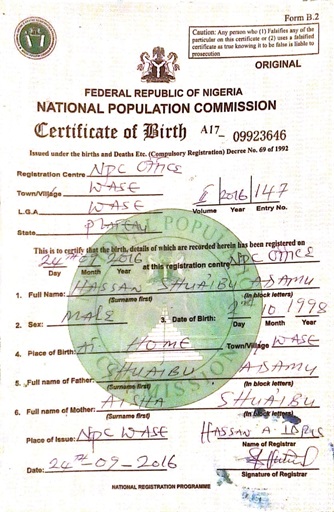 Form B.2
Caution: Any person who (1) Falsifies any of the
particular on this certificate or (2) uses a falsified
certificate as true knowing it to be false is liable to
prosecution
ORIGINAL
FEDERAL REPUBLIC OF NIGERIA
NATIONAL POPULATION COMMISSION
Certificate of Birth A17_ 09923646
Issued under the births and Deaths Etc. (Compulsory Registration) Decree No. 69 of 1992
Registration Centre NPC OFFICE
Town/Village WASE
I 2016 147
L.G.A WASE
Volume Year Entry No.
State PLATEAU
This is to certify that the birth, details of which are recorded herein has been registered on
24TH 09 2016 at this registration centre NPC OFFICE
Day Month Year
1. Full Name: HASSAN SHUAIBU ADAMU
(Surname first) (In block letters)
2. Sex: MALE 3. Date of Birth: 2nd 10 1998
Day Month Year
4. Place of Birth: AT HOME Town/Village WASE
5. Full name of Father: SHUAIBU ADAMU
(Surname first) (In block letters)
6. Full name of Mother: AISHA SHUAIBU
(Surname first) (In block letters)
Place of Issue: NPC WASE HASSAN A. IDRIS
Name of Registrar
Date: 24TH-09-2016
Signature of Registrar
NATIONAL REGISTRATION PROGRAMME